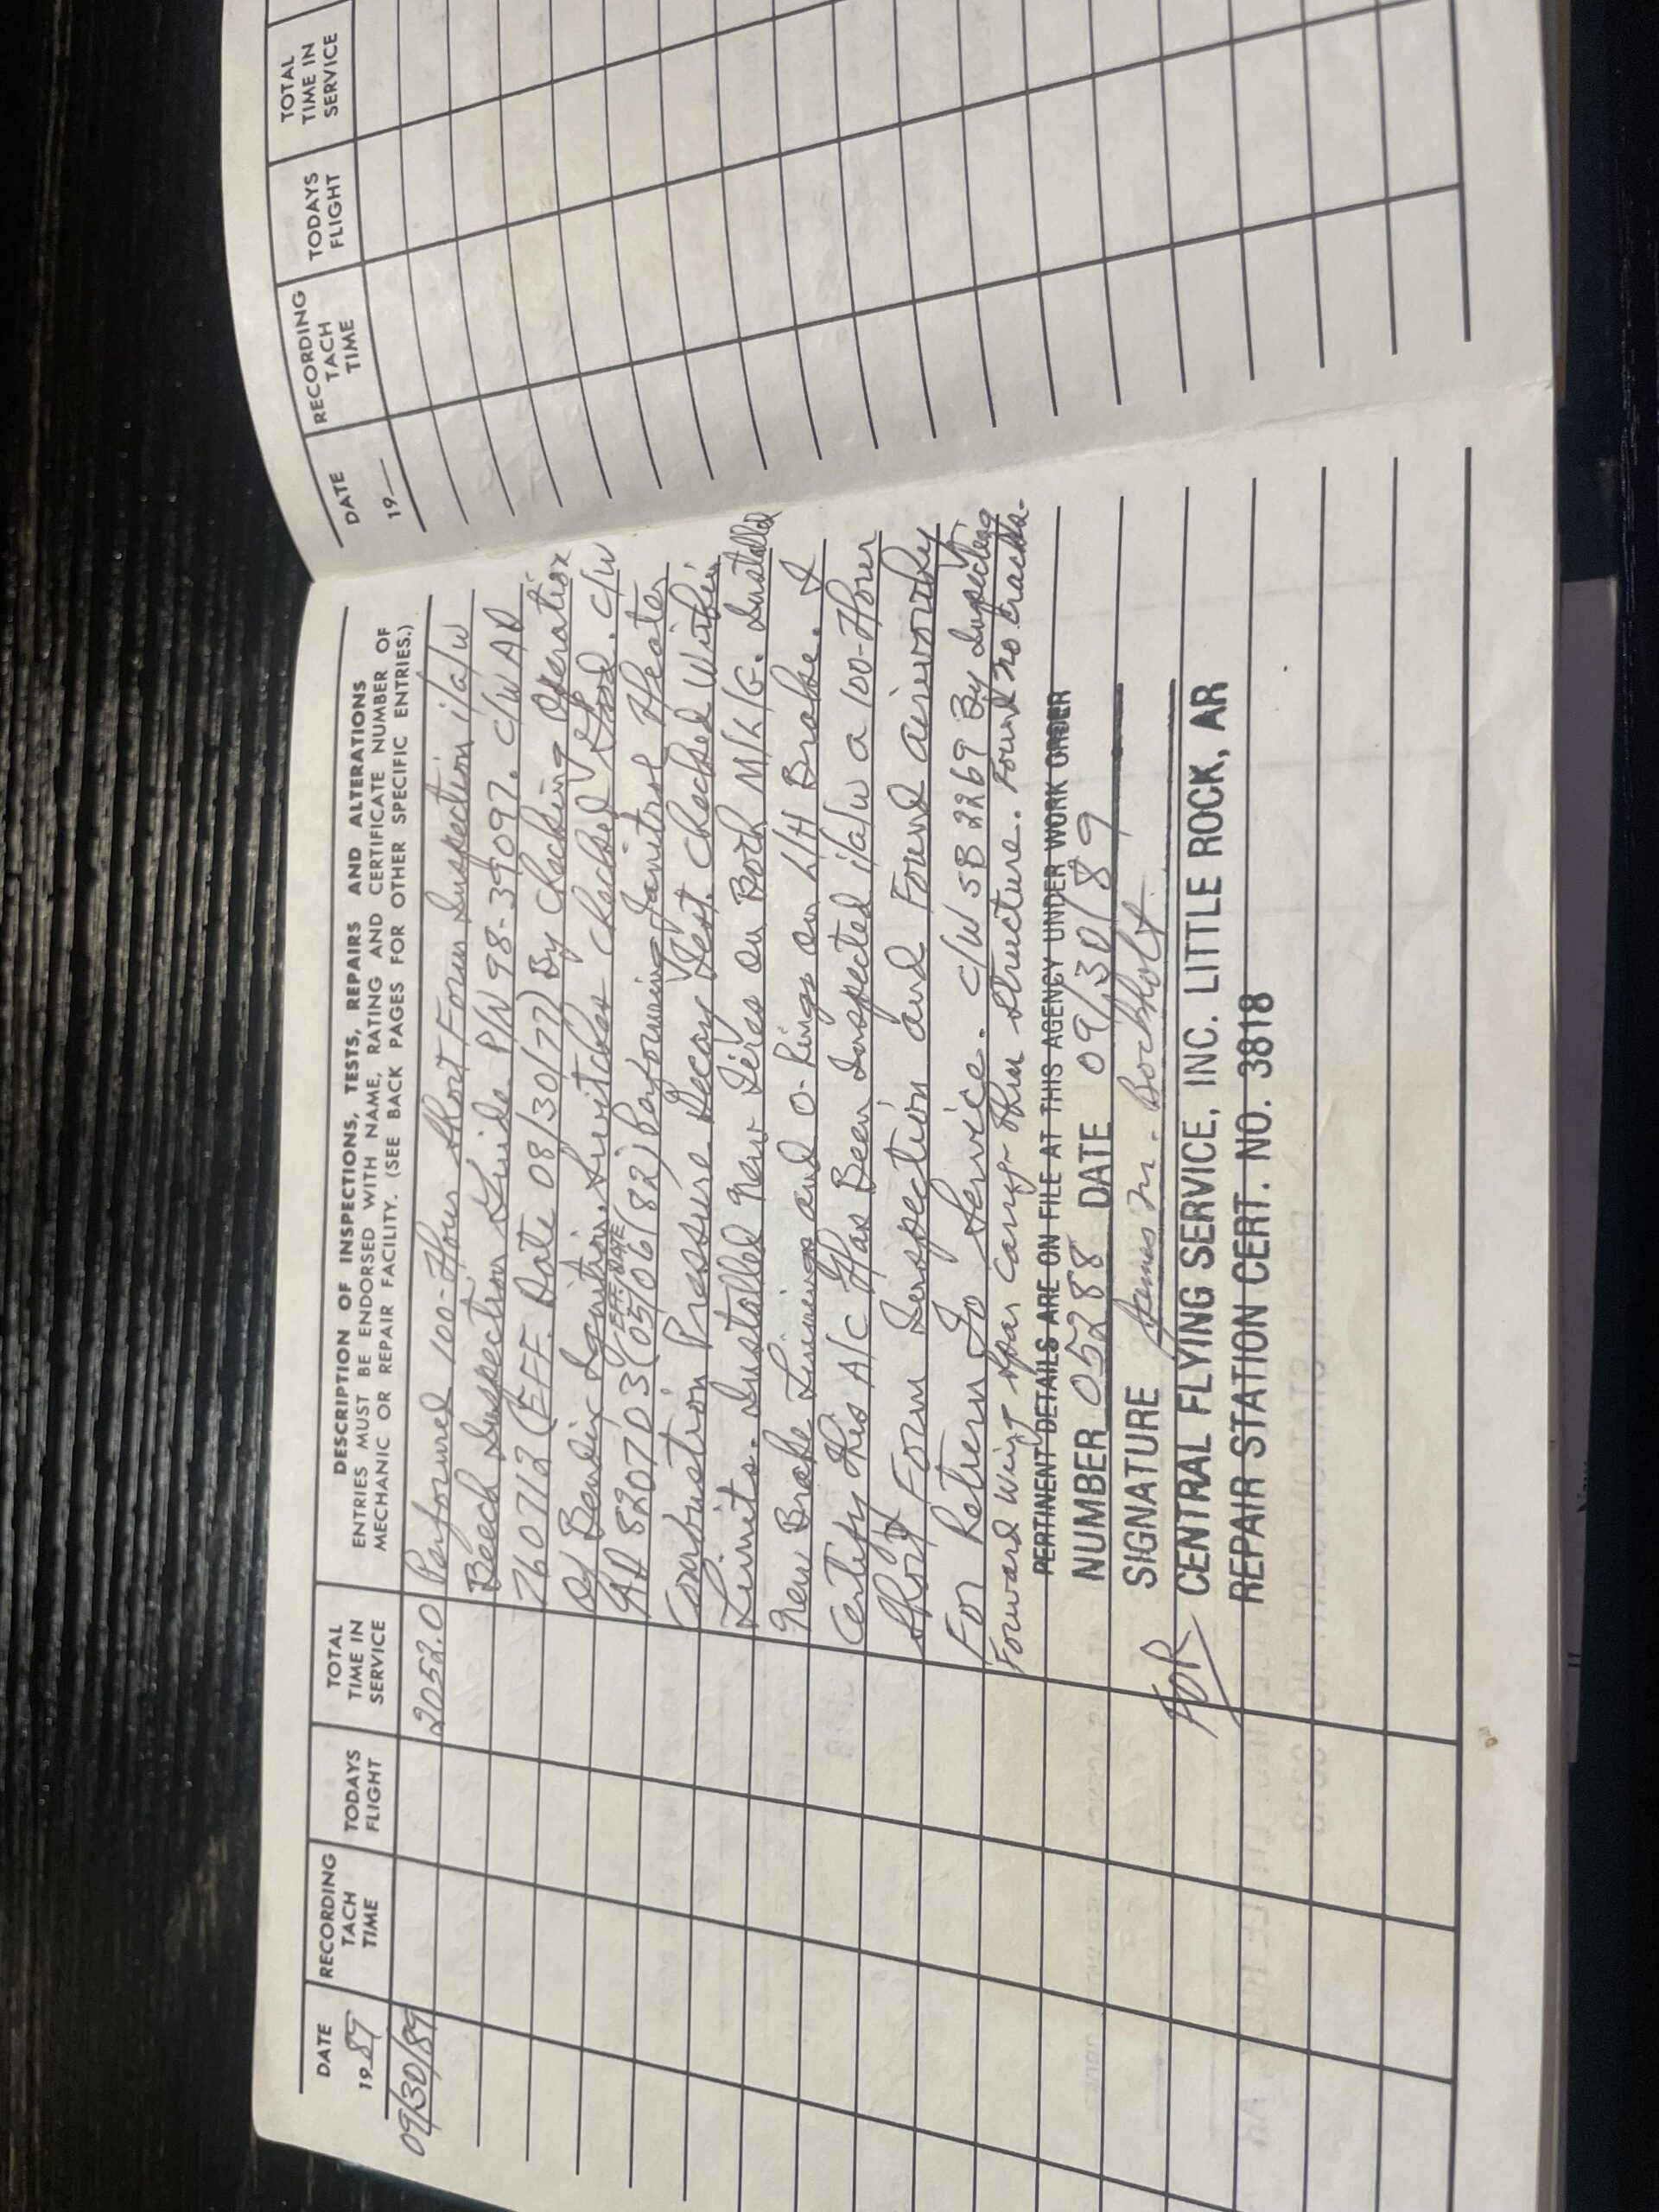 DATE
19 89
RECORDING
TACH
TIME
TODAYS
FLIGHT
TOTAL
TIME IN
SERVICE
DESCRIPTION OF INSPECTIONS, TESTS, REPAIRS AND ALTERATIONS
ENTRIES MUST BE ENDORSED WITH NAME, RATING AND CERTIFICATE NUMBER OF
MECHANIC OR REPAIR FACILITY. (SEE BACK PAGES FOR OTHER SPECIFIC ENTRIES.)
09/30/89 2052.0 Performed 100-Hour Short Form Inspection i/a/w
Beech Inspection Guide P/N 98-39097. C/W AD
76-07-12 (EFF. Date 08/30/77) By Checking Operation
Of Bendix Ignition Switches Checked Good. C/W
EFF. DATE
AD 8207D3 (05/06/82) Performing Janitrol Heater
Combustion Pressure Decay Test. Checked Within
Limits. Installed New Tires on Both M/L/G. Installed
New Brake Linings and O-Rings on L/H Brake. I
Certify This A/C Has Been Inspected i/a/w a 100-Hour
Short Form Inspection and Found airworthy
For Return To Service. C/W SB 2269 By Inspecting
Forward Wing Spar Carry-Thru Structure. Found no Cracks.
PERTINENT DETAILS ARE ON FILE AT THIS AGENCY UNDER WORK ORDER
NUMBER 05288 DATE 09/30/89
SIGNATURE James M. Bockholt
FOR CENTRAL FLYING SERVICE, INC. LITTLE ROCK, AR
REPAIR STATION CERT. NO. 3818
DATE
19
RECORDING
TACH
TIME
TODAYS
FLIGHT
TOTAL
TIME IN
SERVICE